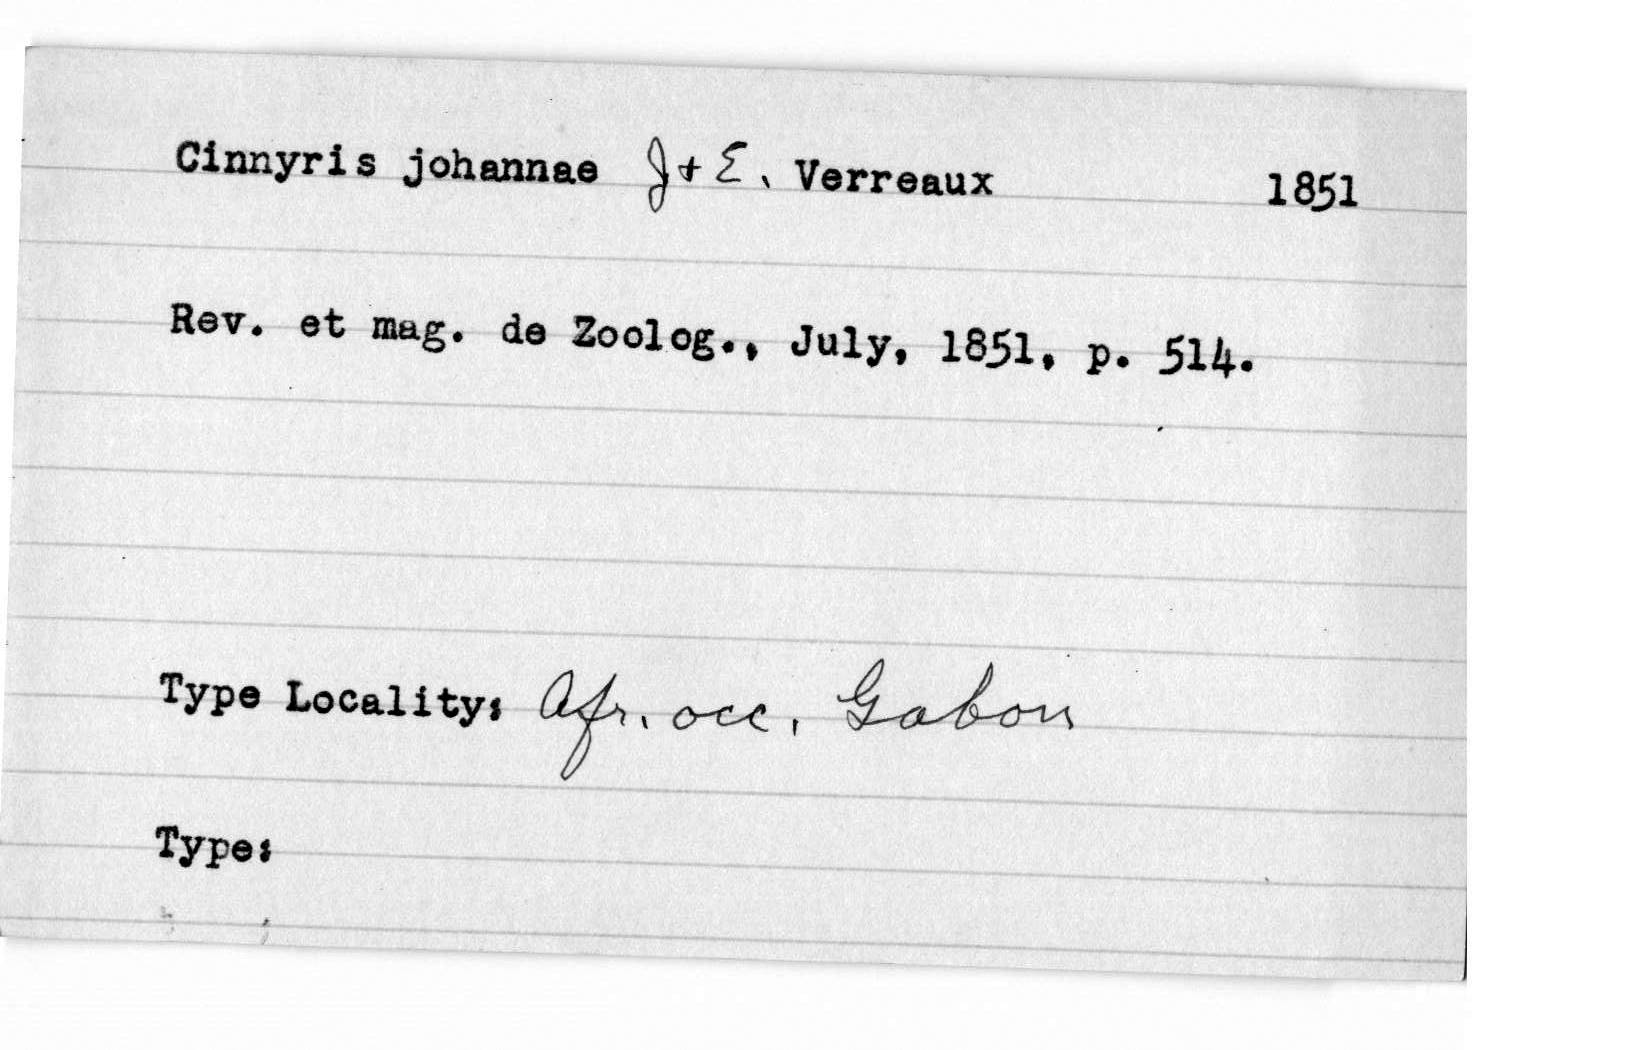 Cinnyris johannae J + E. Verreaux 1851
Rev. et mag. de Zoolog., July, 1851, p. 514.
Type Locality: Afr. occ, Gabon
Type: